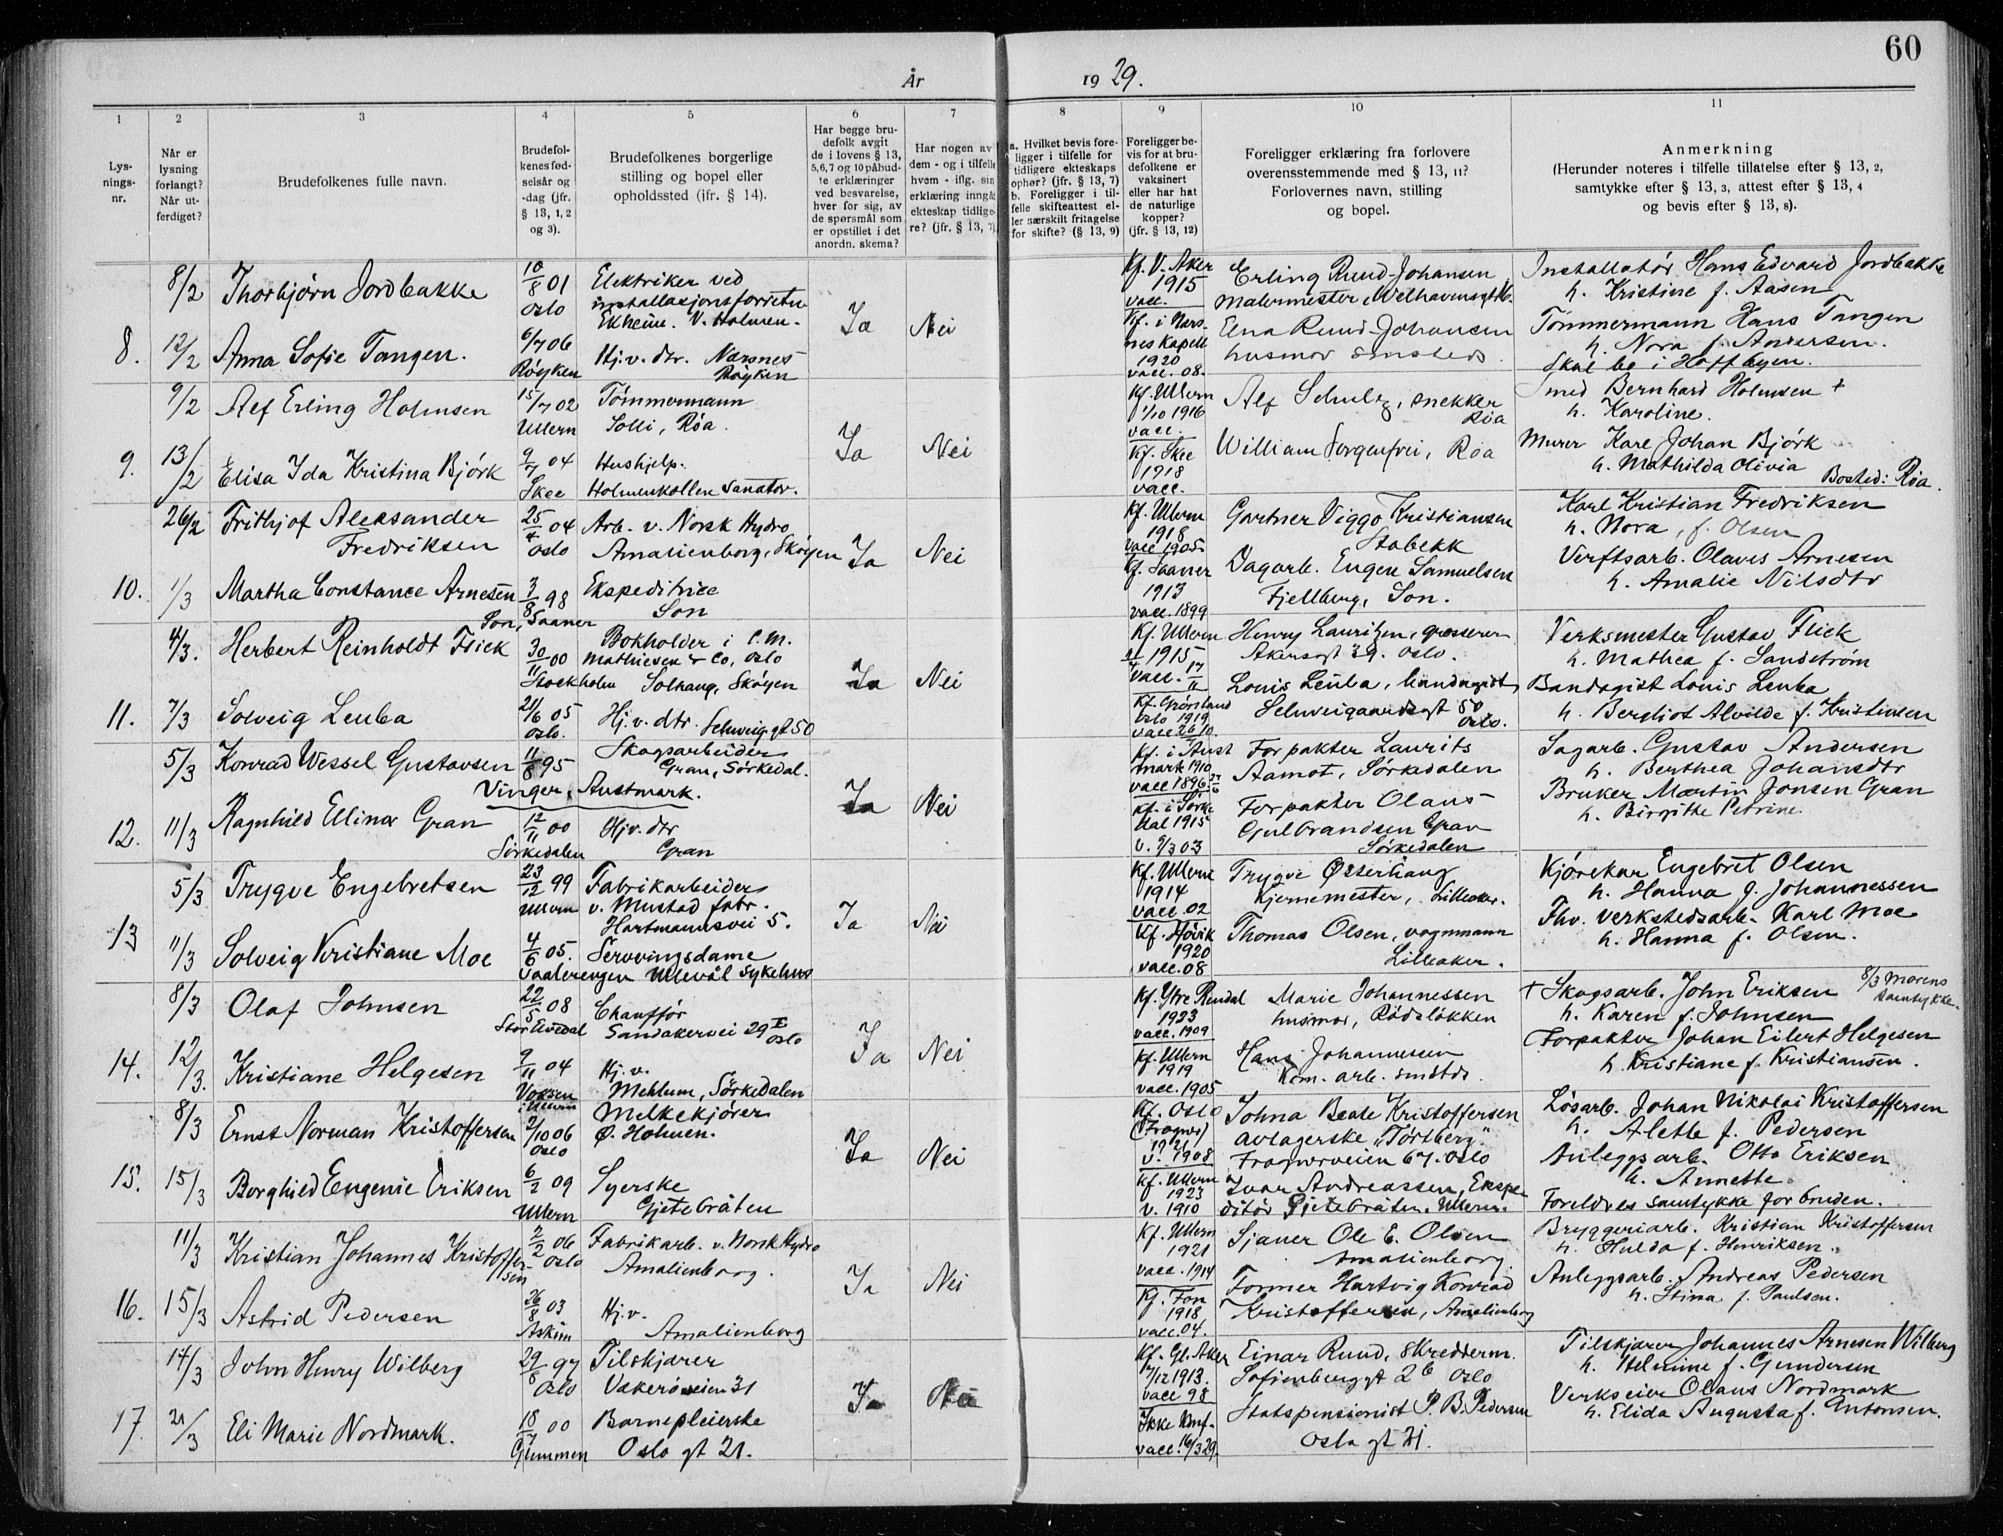 60
År 1929.
1 2 3 4 5 6 7 8 9 10 11
Lysningsnr.
Når er lysning forlangt? Når utferdiget?
Brudefolkenes fulle navn.
Brudefolkenes fødselsår og -dag (jfr. § 13, 1, 2 og 3).
Brudefolkenes borgerlige stilling og bopel eller opholdssted (jfr. § 14).
Har begge brudefolk avgit de i lovens § 13, 5,6,7 og 10 påbudte erklæringer ved besvarelse, hver for sig, av de spørsmål som er opstillet i det anordn. skema?
Har nogen av dem - og i tilfelle hvem - iflg. sin erklæring inngåt ekteskap tidligere? (jfr. § 13, 7)
a. Hvilket bevis foreligger i tilfelle for tidligere ekteskaps ophør? (jfr. § 13, 7) b. Foreligger i tilfelle skifteattest eller særskilt fritagelse for skifte? (§ 13, 9)
Foreligger bevis for at brudefolkene er vaksinert eller har hat de naturlige kopper? (jfr. § 13, 12)
Foreligger erklæring fra forlovere overensstemmende med § 13, 11? Forlovernes navn, stilling og bopel.
Anmerkning (Herunder noteres i tilfelle tillatelse efter § 13, 2, samtykke efter § 13, 3, attest efter § 13, 4 og bevis efter § 13, 8).
8/2 Thorbjørn Jordbakke 10/8 01 Oslo Elektriker ved installasjonsforretn. Ekheim. V. Holmen.
Kf. V. Aker 1915 vacc. Erling Ruud-Johansen malermester, Welhavensgt
Installatør Hans Edvard Jordbakke h. Kristine f. Aasen
8. 12/2 Anna Sofie Tangen. 6/7 06 Røyken Hj.v. dtr. Nærsnes Røyken Ja Nei
Kf. i Nærsnes Kapell 1920 vacc. 08. Elna Ruud-Johansen husmor smsteds
Tømmermann Hans Tangen h. Nora f. Andersen. Skal bo i Hoffbyen.
9/2 Alf Erling Holmsen 15/7 02 Ullern Tømmermann Solli, Røa.
Kf. Ullern 1/10 1916 vacc. Alf Schulz, snekker Røa
Smed Bernhard Holmsen + h. Karoline.
9. 13/2 Elisa Ida Kristina Bjørk 9/7 04 Skee Hushjelp. Holmenkollen Sanator. Ja Nei
Kf. Skee 1918 vacc. William Sorgenfrei, Røa
Murer Karl Johan Bjørk h. Mathilda Olivia Bosted: Røa.
26/2 Frithjof Aleksander Fredriksen 25/4 04 Oslo Arb. v. Norsk Hydro Amalienborg, Skøyen
Kf. Ullern 1918 vacc 1905 Gartner Viggo Kristiansen Stabekk
Karl Kristian Fredriksen h. Nora, f. Olsen
10. 1/3 Martha Constance Arnesen 3/8 98 Son, Saaner Ekspeditrice Son Ja Nei
Kf. Saaner 1913 vacc. 1899 Dagarb. Eugen Samuelsen Fjellberg, Son.
Verftsarb. Olaves Arnesen h. Amalie Nilsdtr
4/3. Herbert Reinholdt Flick 30/11 00 Stockholm Bokholder i C. M. Mathiesen & Co, Oslo Solhaug, Skøyen
Kf. Ullern 1915 vacc. 17/11 Henry Lauritzen, grosserer Akersgt 39. Oslo.
Verksmester Gustav Flick h. Mathea f. Sandstrøm
11. 7/3 Solveig Leuba 21/6 05 Oslo. Hj.v. dtr. Schweigg.gt 50 Ja Nei
Kf. Grønland Oslo 1919 vacc 26/10. Louis Leuba, bandagist, Schweigaardsgt 50 Oslo.
Bandagist Louis Leuba h. Bergliot Alvilde f. Kristiansen
5/3 Konrad Wessel Gustavsen 11/8 95 Vinger, Austmark. Skogsarbeider Gran, Sørkedal.
Kf. i Austmark 1910 vacc 1896 Forpakter Laurits Aamot, Sørkedalen
Sagarb. Gustav Andersen h. Berthea Johansdtr
12. 11/3 Ragnhild Elinor Gran 12/11 00 Sørkedalen Hj.v. dtr Gran Ja Nei
Kf. i Sørkedal 1915 v. 9/3 03 Forpakter Olaus Gulbrandsen Gran Sørkedalen
Bruker Martin Jonsen Gran h. Birgithe Petrine.
5/3 Trygve Engebretsen 23/12 99 Ullern Fabrikarbeider v. Mustad fabr. Hartmannsvei 5.
Kf. Ullern 1914 vacc. 02 Trygve Østerhaug Kjernemester, Lilleaker.
Kjørekar Engebret Olsen h. Hanna f. Johannessen
13 11/3 Solveig Kristiane Moe 4/6 05. Vaalerengen Servvingsdame Ullevål Sykehus Ja Nei
Kf. Høvik 1920 vacc. 08 Thomas Olsen, vognmann Lilleaker.
Fhv. Verkstedsarb. Karl Moe h. Hanna f. Olsen.
8/3 Olaf Johnsen 22/5 08 Stor Elvedal Chauffør Sandakervei 29 Oslo
Kf. Ytre Rendal 1923 vacc. 1909 Marie Johannessen husmor, Rødsløkken
+ Skogsarb. John Eriksen h. Karen f. Johnsen 8/3 Morens samtykke.
14. 12/3. Kristiane Helgesen 9/11 04 Voksen i Ullern Hj.v. Mehlum, Sørkedalen Ja Nei
Kf. Ullern 1919 vacc. 1905 Hans Johannessen Kom. arb. smstds.
Forpakter Johan Eilert Helgesen h. Kristiane f. Kristiansen.
8/3 Ernst Norman Kristoffersen 2/10 06 Oslo Melkekjører Ø. Holmen.
Kf. Oslo (Frogner) 1921 v. 1908 Johna Beate Kristoffersen avtagerske "Tørtberg" Frognerveien 67. Oslo
Løsarb. Johan Nikolai Kristoffersen h. Alette f. Pedersen
15. 15/3 Borghild Eugenie Eriksen 6/2 09 Ullern Syerske Gjetebråten Ja Nei
Kf. Ullern 1923 v. 1910 Ivar Andreassen, Ekspeditør Gjetebråten, Ullern.
Anleggsarb. Otto Eriksen h. Annette. Foreldres samtykke for bruden.
11/3 Kristian Johannes Kristoffersen 2/2 06 Oslo Fabrikarb. v. Norsk Hydro Amalienborg.
Kf. Ullern 1921 vacc. 1914 Sjauer Ole E. Olsen Amalienborg
Bryggeriarb. Kristian Kristoffersen h. Hulda f. Henriksen.
16. 15/3 Astrid Pedersen 26/8 03 Askim Hj.v. Amalienborg Ja Nei
Kf. Fon 1918 vacc. 04. Former Hartvig Konrad Kristoffersen, Amalienborg
Anleggsarb. Andreas Pedersen h. Stina f. Paulsen.
14/3 John Henry Wilberg 29/8 97 Oslo Tilskjærer Vækerøveien 31
Kf. Gl. Aker 17/12 1913. vacc 98 Einar Ruud, skredderm. Sofienberggt 2b Oslo
Tilskjærer Johannes Arnesen Wilberg h. Helmine f. Gundersen
17. 21/3 Eli Marie Nordmark. 18/7 00 Glemmen Barnepleierske Oslo gt 21. Ja Nei
Ikke konf. vacc. 16/3 29. Statspensionist P. B. Pedersen Oslo gt 21.
Verkseier Olaus Nordmark h. Elida Augusta f. Antonsen.